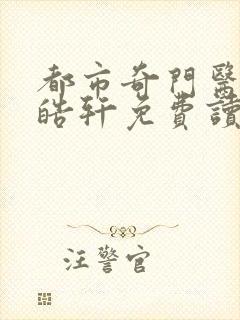 都市奇門醫
皓軒免費讀
汪警官